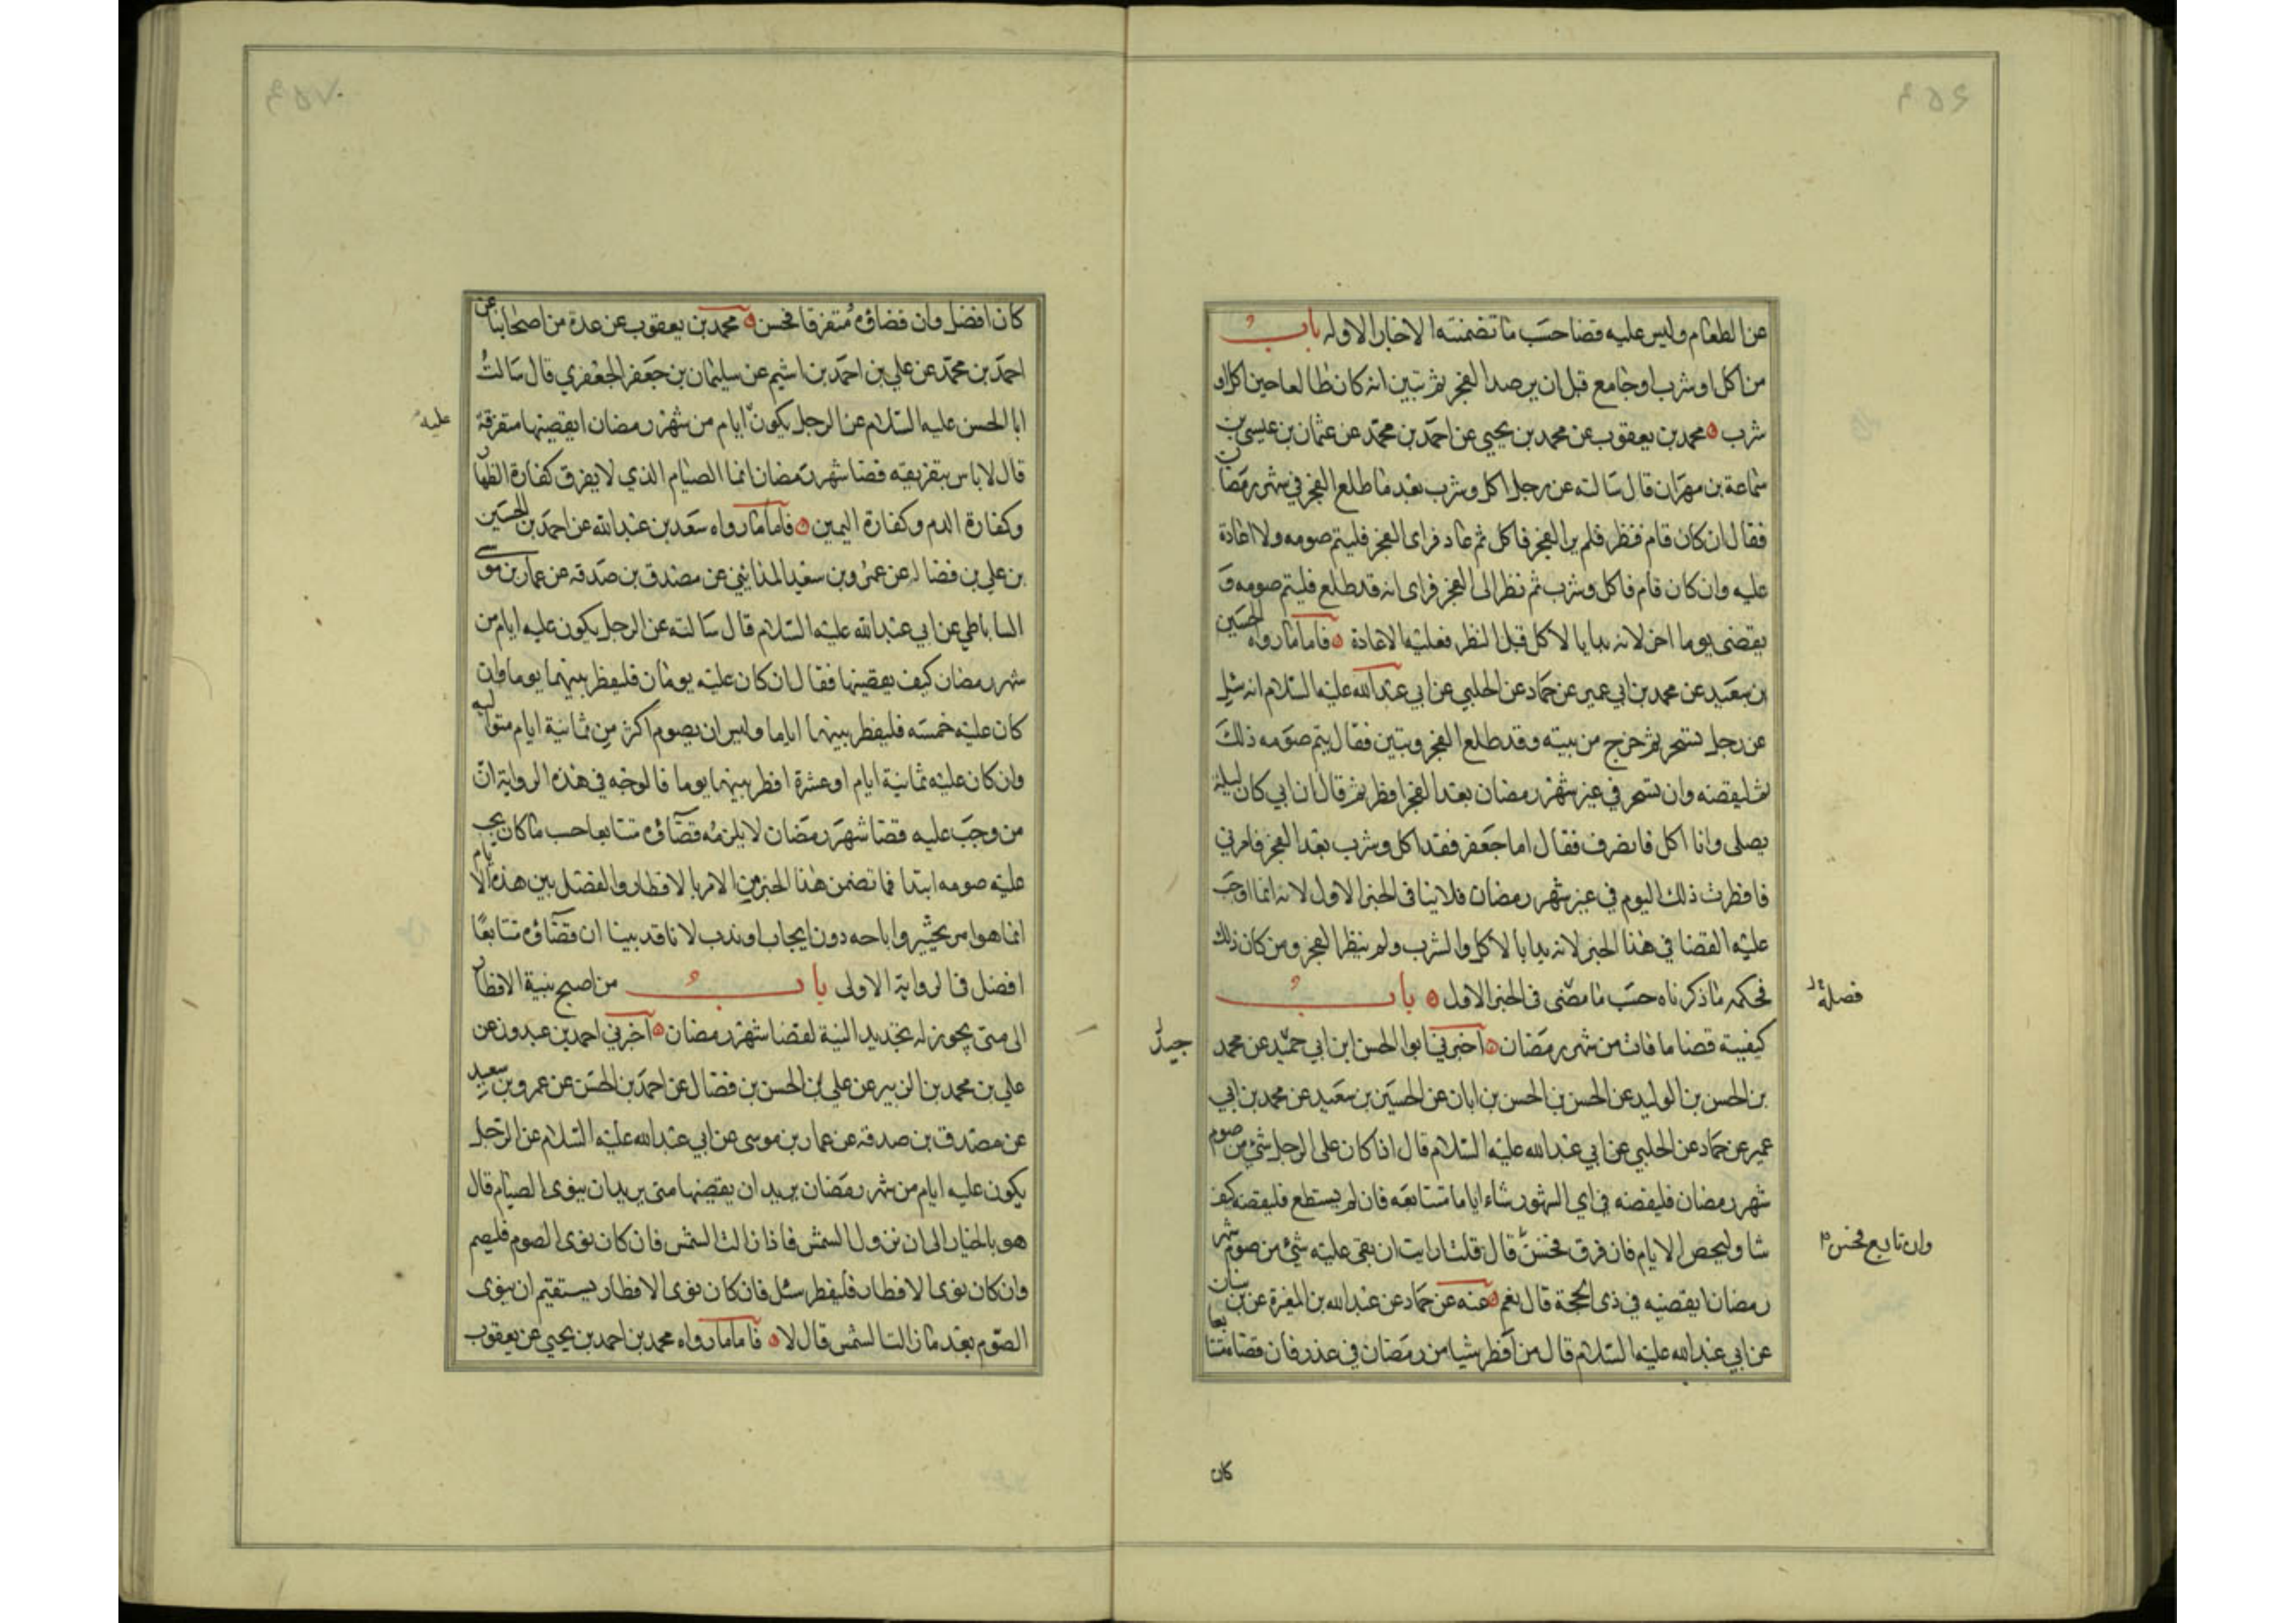 عن الطعام وليس عليه قضا حسب ما تضمنته الاخبار الاوله باب
من اكل او شرب او جامع قبل ان يرصد الفجر ثم تبين انه كان طالعا حين اكل او
شرب محمد بن يعقوب عن محمد بن يحيى عن احمد بن محمد عن عثمان بن عيسى عن
سماعة بن مهران قال سالته عن رجل اكل وشرب بعد ما طلع الفجر في شهر رمضان
فقال ان كان قام فنظر فلم ير الفجر فاكل ثم عاد فراى الفجر فليتم صومه ولا اعادة
عليه وان كان قام فاكل وشرب ثم نظر الى الفجر فراى انه قد طلع فليتم صومه و
يقضى يوما اخر لانه بدا بالاكل قبل النظر فعليه الاعادة فاما ما رواه الحسين
بن سعيد عن محمد بن ابي عمير عن حماد عن الحلبي عن ابي عبد الله عليه السلام انه سئل
عن رجل تسحر ثم خرج من بيته وقد طلع الفجر وتبين فقال يتم صومه ذلك
ثم ليقضه وان تسحر في غير شهر رمضان بعد الفجر افطر ثم قال ان ابي كان ليلة
يصلى وانا اكل فانصرف فقال اما جعفر فقد اكل وشرب بعد الفجر فامرني
فافطرت ذلك اليوم في غير شهر رمضان فلا ينافى الخبر الاول لانه انما اوجب
عليه القضا في هذا الخبر لانه بدا بالاكل والشرب ولم ينظر الفجر ومن كان ذلك
فحكمه ما ذكرناه حسب ما مضى في الخبر الاول باب
كيفية قضا ما فات من شهر رمضان اخبرني ابو الحسن ابن ابي جيد عن محمد
بن الحسن بن الوليد عن الحسن بن الحسن بن ابان عن الحسين بن سعيد عن محمد بن ابي
عمير عن حماد عن الحلبي عن ابي عبد الله عليه السلام قال اذا كان على الرجل شئ من صوم
شهر رمضان فليقضه في اي الشهور شاء اياما متتابعه فان لم يستطع فليقضه كيف
شا وليحص الايام فان فرق فحسن قال قلت ارايت ان بقى عليه شئ من صوم شهر
رمضان ايقضيه في ذى الحجة قال نعم عنه عن حماد عن عبد الله بن المغيرة عن بن سنان
عن ابي عبد الله عليه السلام قال من افطر شيا من رمضان في عذر فان قضاه متتابعا
فصله
جيد
وان تابع فحسن
كان
كان افضل وان قضاؤه متفرقا فحسن محمد بن يعقوب عن عدة من اصحابنا عن
احمد بن محمد عن علي بن احمد بن اشيم عن سليمان بن جعفر الجعفري قال سالت
ابا الحسن عليه السلام عن الرجل يكون ايام من شهر رمضان ايقضيها متفرقة
عليه
قال لا باس بتفريقه قضا شهر رمضان انما الصيام الذي لا يفرق كفارة الظهار
وكفارة الدم وكفارة اليمين فاما ما رواه سعد بن عبد الله عن احمد بن الحسين
بن علي بن فضال عن عمرو بن سعيد المدايني عن مصدق بن صدقه عن عمار بن موسى
الساباطي عن ابي عبد الله عليه السلام قال سالته عن الرجل يكون عليه ايام من
شهر رمضان كيف يقضيها فقال ان كان عليه يومان فليفطر بينهما يوما وان
كان عليه خمسه فليفطر بينها اياما وليس ان يصوم اكثر من ثمانية ايام متواليه
وان كان عليه ثمانية ايام او عشرة افطر بينها يوما فالوجه في هذه الرواية ان
من وجب عليه قضا شهر رمضان لا يلزمه قضاؤه متتابعا حسب ما كان يجب
عليه صومه ابتدا فما تضمن هذا الخبر من الامر بالافطار والفصل بين هذه الايام
انما هو امر تخيير واباحه دون ايجاب او ندب لانا قد بينا ان قضاؤه متتابعا
افضل في الرواية الاولى باب من اصبح بنية الافطار
الى متى يجوز له تجديد النية لقضا شهر رمضان اخبرني احمد بن عبدون عن
علي بن محمد بن الزبير عن علي بن الحسن بن فضال عن احمد بن الحسن عن عمرو بن سعيد
عن مصدق بن صدقه عن عمار بن موسى عن ابي عبد الله عليه السلام عن الرجل
يكون عليه ايام من شهر رمضان يريد ان يقضيها متى يريد ان ينوى الصيام قال
هو بالخيار الى ان تزول الشمس فاذا زالت الشمس فان كان نوى الصوم فليصم
وان كان نوى الافطار فليفطر سئل فان كان نوى الافطار يستقيم ان ينوى
الصوم بعد ما زالت الشمس قال لا فاما ما رواه محمد بن احمد بن يحيى عن يعقوب